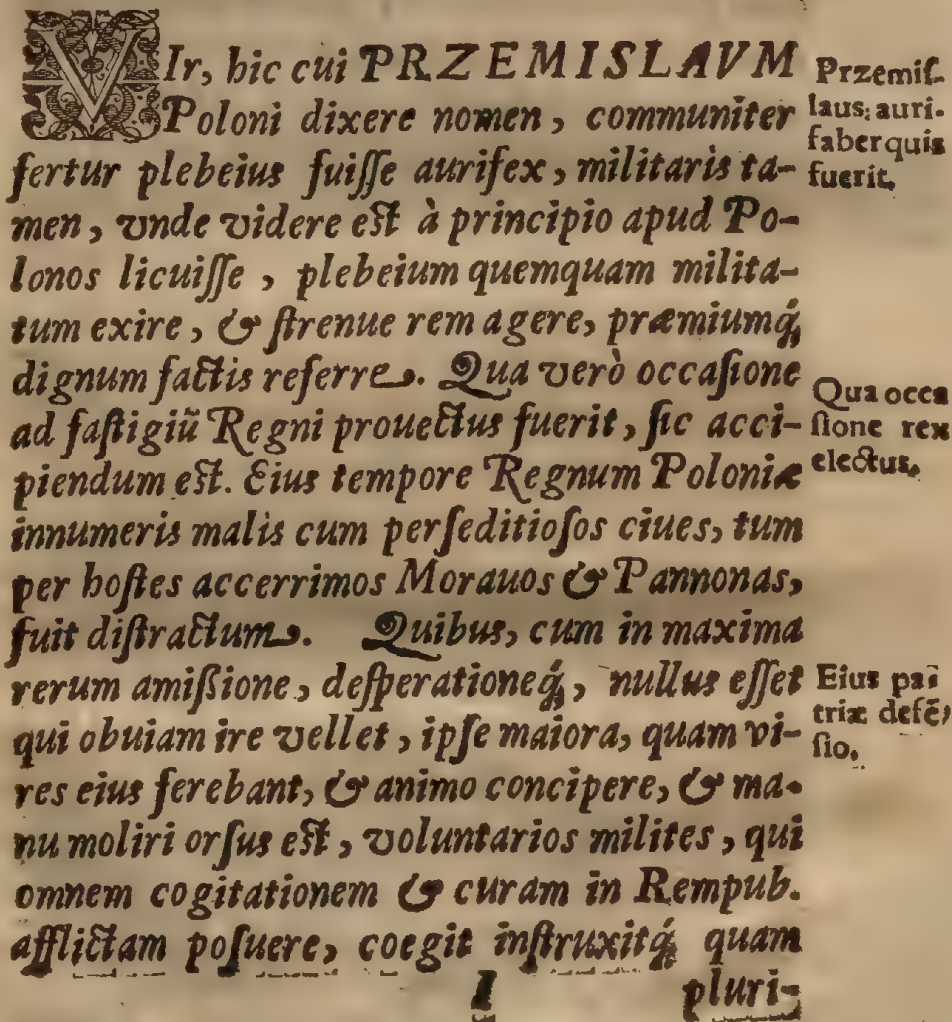 VIr, hic cui PRZEMISLAVM
Poloni dixere nomen, communiter
fertur plebeius fuiſſe aurifex, militaris ta-
men, vnde videre eſt à principio apud Po-
lonos licuiſſe, plebeium quemquam milita-
tum exire, & ſtrenue rem agere, præmiumq́;
dignum factis referre. Qua verò occaſione
ad faſtigiū Regni prouectus fuerit, ſic acci-
piendum eſt. Eius tempore Regnum Poloniæ
innumeris malis cum per ſeditioſos ciues, tum
per hoſtes accerrimos Morauos & Pannonas,
fuit diſtractum. Quibus, cum in maxima
rerum amiſſione, deſperationeq́;, nullus eſſet
qui obuiam ire vellet, ipſe maiora, quam vi-
res eius ferebant, & animo concipere, & ma-
nu moliri orſus eſt, voluntarios milites, qui
omnem cogitationem & curam in Rempub.
afflictam poſuere, coegit inſtruxitq́; quam
I pluri-
Przemiſ-
laus: auri-
faber quis
fuerit.
Qua occa
ſione rex
electus.
Eius pa-
triæ defẽ-
ſio.